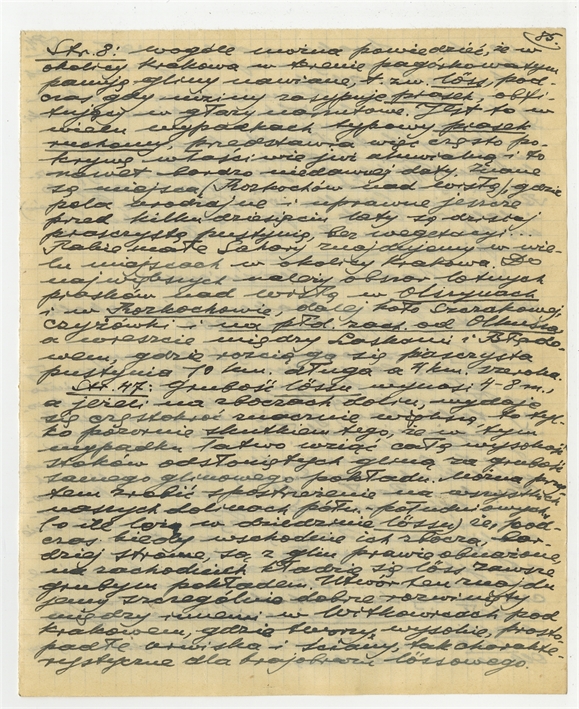 85.
Str. 8: wogóle można powiedzieć, że w
okolicy Krakowa w terenie pagórkowatym
panują gliny nawiane, t. zw. löss, pod-
czas gdy niziny zasypuje piasek, obfi-
tujący w głazy narzutowe. Jest to w
wielu wypadkach typowy piasek
ruchomy, przedstawia więc często po-
krywę właściwie już aluwialną i to
nawet bardzo niedawnej daty. Znane
są miejsca (Rozkochów nad Wisłą), gdzie
pola urodzajne i uprawne jeszcze
przed kilkudziesięciu laty są dzisiaj
piaszczystą pustynią, bez wegetacyi...
Takie małe Sahary znajdujemy w wie-
lu miejscach w okolicy Krakowa. Do
największych należy obszar lotnych
piasków nad Wisłą w Olszynach
i w Rozkochowie, dalej koło Szczakowej,
Czyżówki i na płd. zach. od Olkusza,
a wreszcie między Laskami i Błędo-
wem, gdzie rozciąga się piaszczysta
pustynia 10 km. długa a 4 km. szeroka.
Str. 47: Grubość lössu wynosi 4-8 m.,
a jeżeli na zboczach dolin, wydaje
się częstokroć znacznie większą, to tyl-
ko pozornie skutkiem tego, że w tym
wypadku łatwo wziąć całą wysokość
stoków odsłoniętych gliną za grubość
samego glinowego pokładu. Można przy-
tem zrobić spostrzeżenie na wszystkich
naszych dolinach półn. południowych
(o ile leżą w dziedzinie lössu) że, pod-
czas kiedy wschodnie ich zbocza, bar-
dziej strome, są z glin prawie obnażone,
na zachodnich kładzie się löss zawsze
grubym pokładem. Utwór ten znajdu-
jemy szczególnie dobrze rozwinięty
między innemi w Witkowicach pod
Krakowem, gdzie tworzy wysokie, prosto-
padłe urwiska i ściany, tak charakte-
rystyczne dla krajobrazu lössowego.